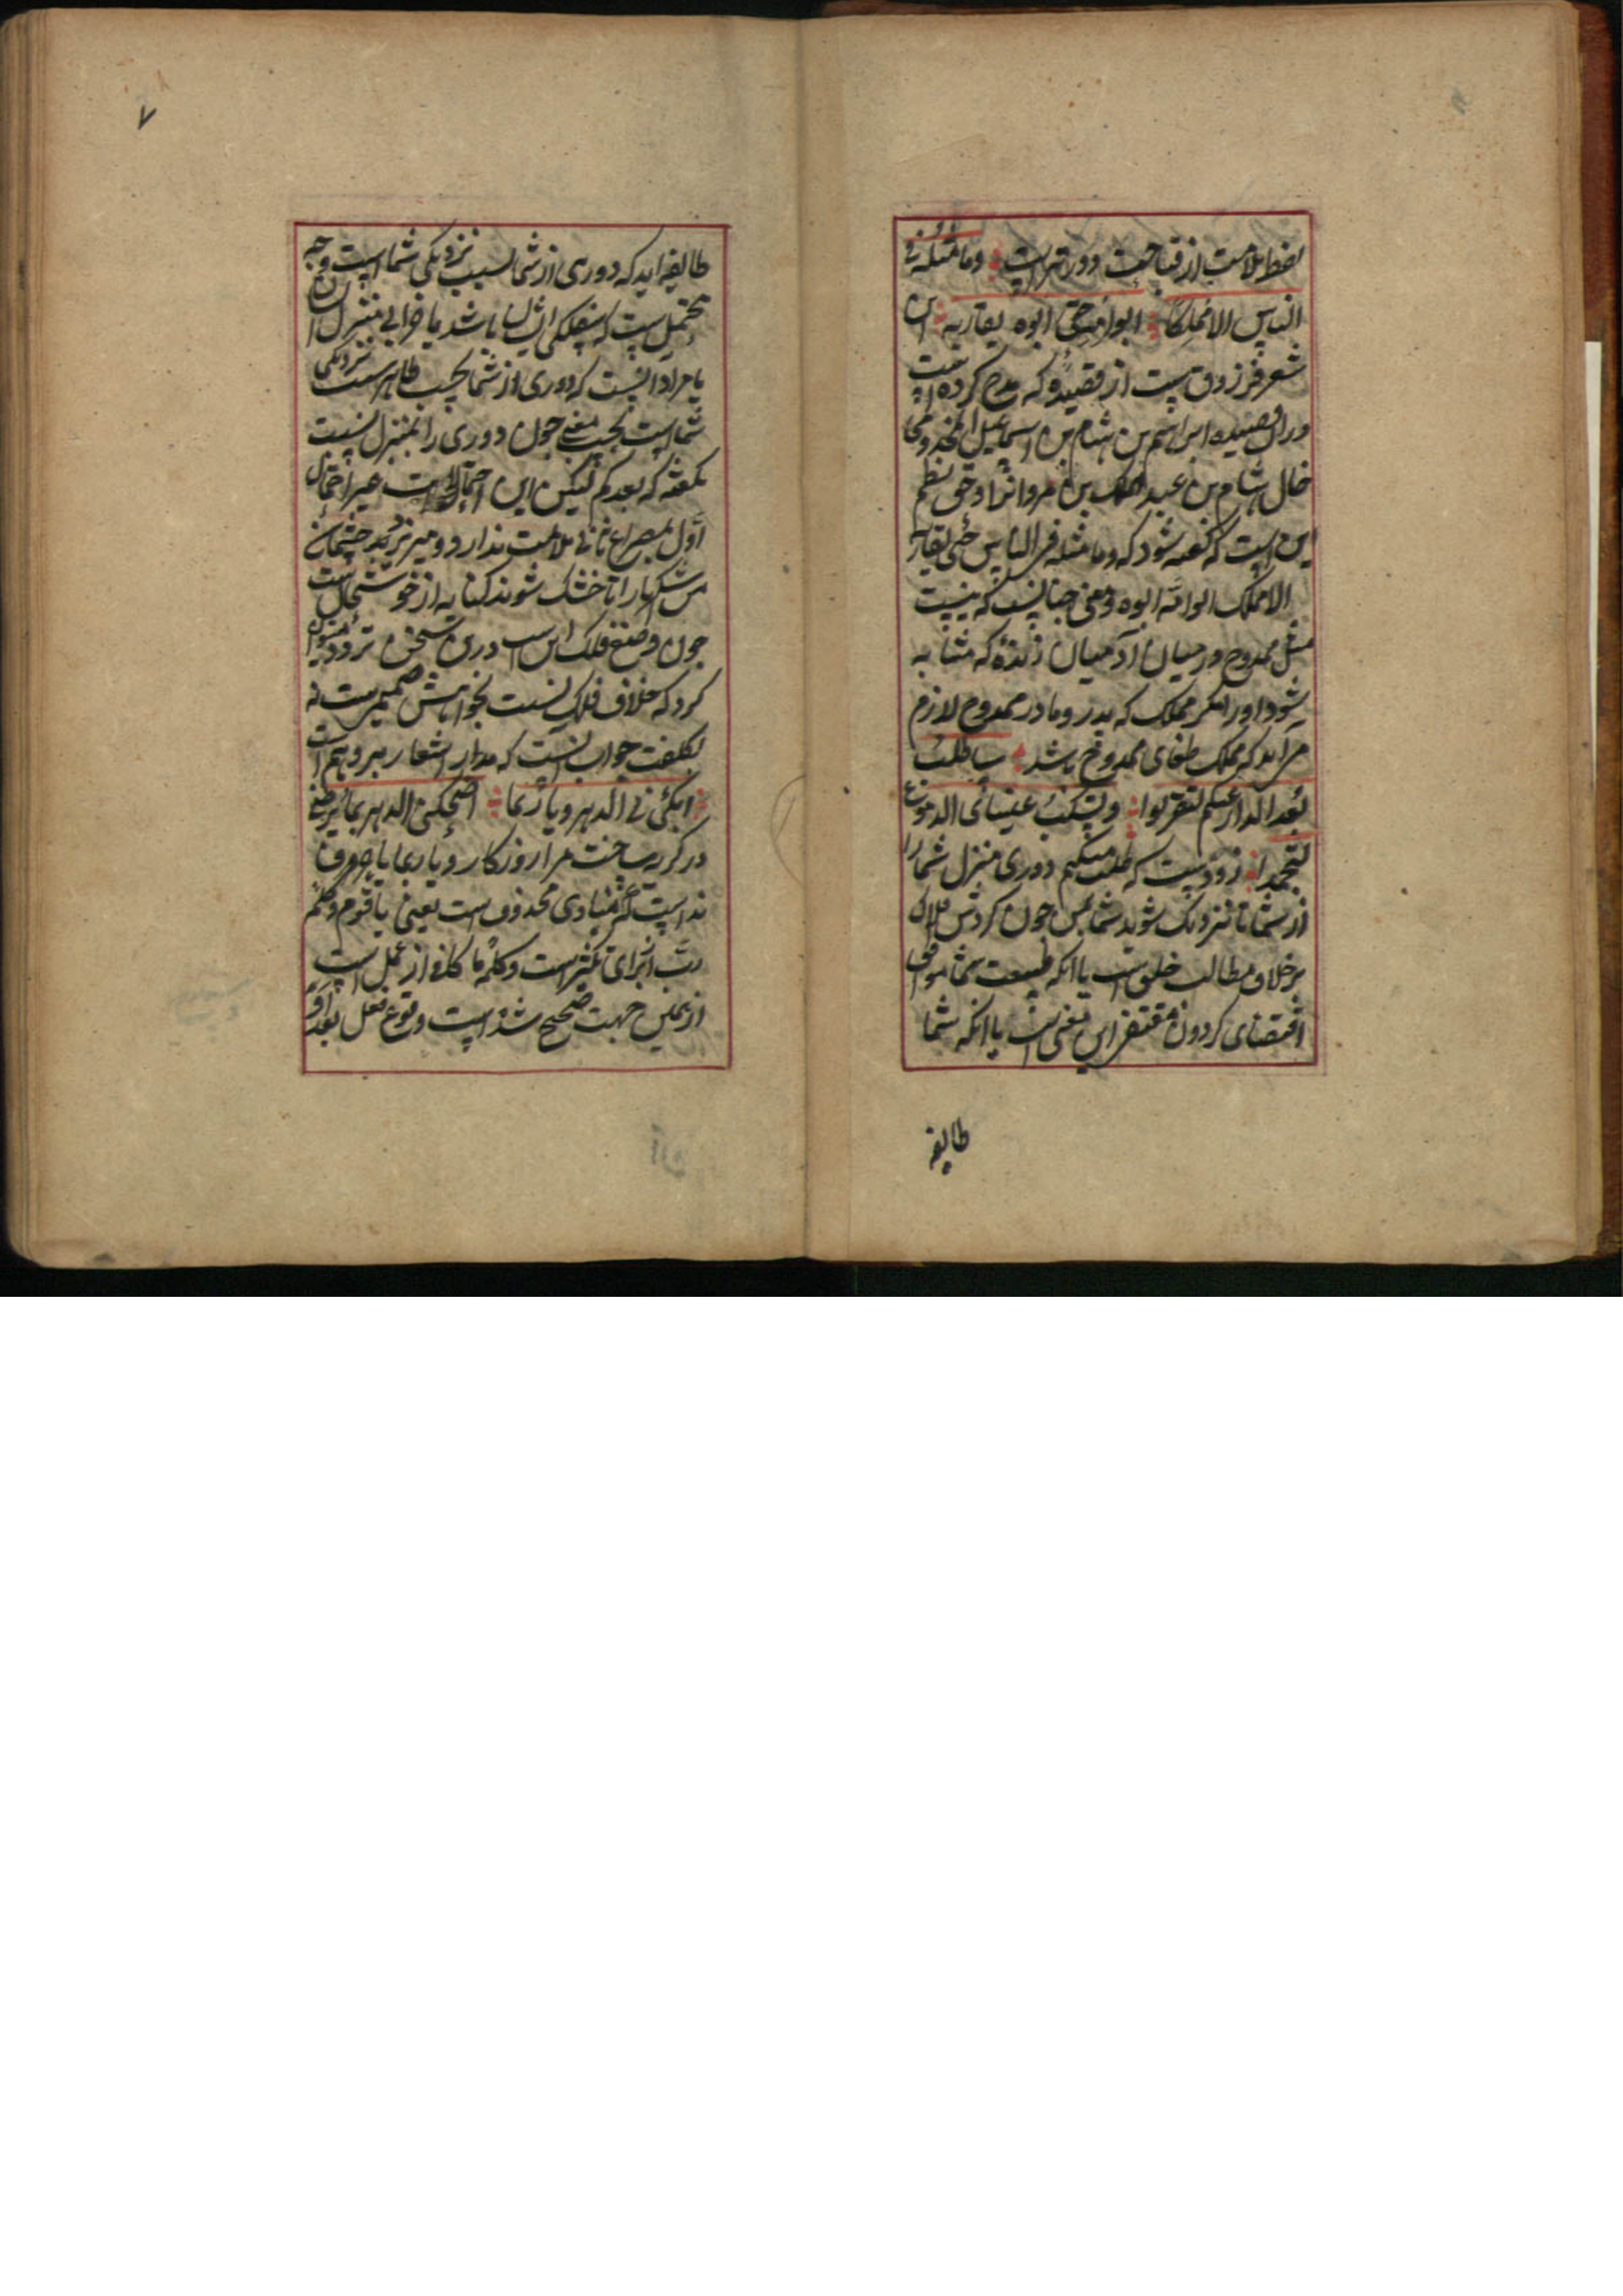 لفظ ملامت از قباحت دورتر است وما مثله فی
الناس الا مملکا ابو امه حی ابوه یقاربه این
شعر فرزوق است از قصیده که مدح کرده است
در ان قصیده ابراهیم بن هشام بن اسماعیل المخزومی
خال هشام بن عبد الملک بن مروانرا و حق نظم
این است که گفته شود که وما مثله فی الناس حی یقاربه
الا مملک ابو امه ابوه و معنی چنانست که نیست
مثل ممدوح در میان آدمیان زندهٔ که مشابه
شود او را مکر مملک که پدر و مادر ممدوح لازم
می اید که مملک طغای ممدوح باشد ساطلب
بعد الدار عنکم لتقربوا وتسکب عینای الدموع
لتجمدا زودست که طلب میکنم دوری منزل شما را
از شما تا نزدیک شوید شما بمن چون کردش فلک
بر خلاف مطالب خلق است یا انکه طبیعت شما موافق
اقتضای کردون مقتضر این معنی است یا انکه شما
طایفه
۷
طایفه اید که دوری از شما بسبب نزدیکی شما است وجه
محتمل است که بفلکی ایشان باشد یا خرابی منزل ایشان
یا مراد انست که دوری از شما بحسب ظاهر سبب نزدیکی
شما است بحسب معنی چون دوری را بمنزل نسبت
نکفته که بعدکم لیکن این احتمال است غیر احتمال
اول بمصراع ثانی ملامت ندارد و میریزند چشمان
من اشکها را تا خشک شوند کنایه از خوشحالی است
چون وضع فلک این است درین سخن تردد میتوان
کرد که خلاف فلک نسبت بخواهش ضمیرست نه
بکلفت جواب انست که مدار اشعار بر وهم است
ابکی نی الدهر ویا ربما اضحکنی الدهر بما یرضی
در کریه ساخت مرا روزکار و یا ربما یا حرف
ندا است که منادی محذوف است یعنی یا قوم وکلمه
رب از برای تکثیر است و کلمه ما کافه از عمل است
از همین جهت صحیح شده است وقوع فعل بعد او